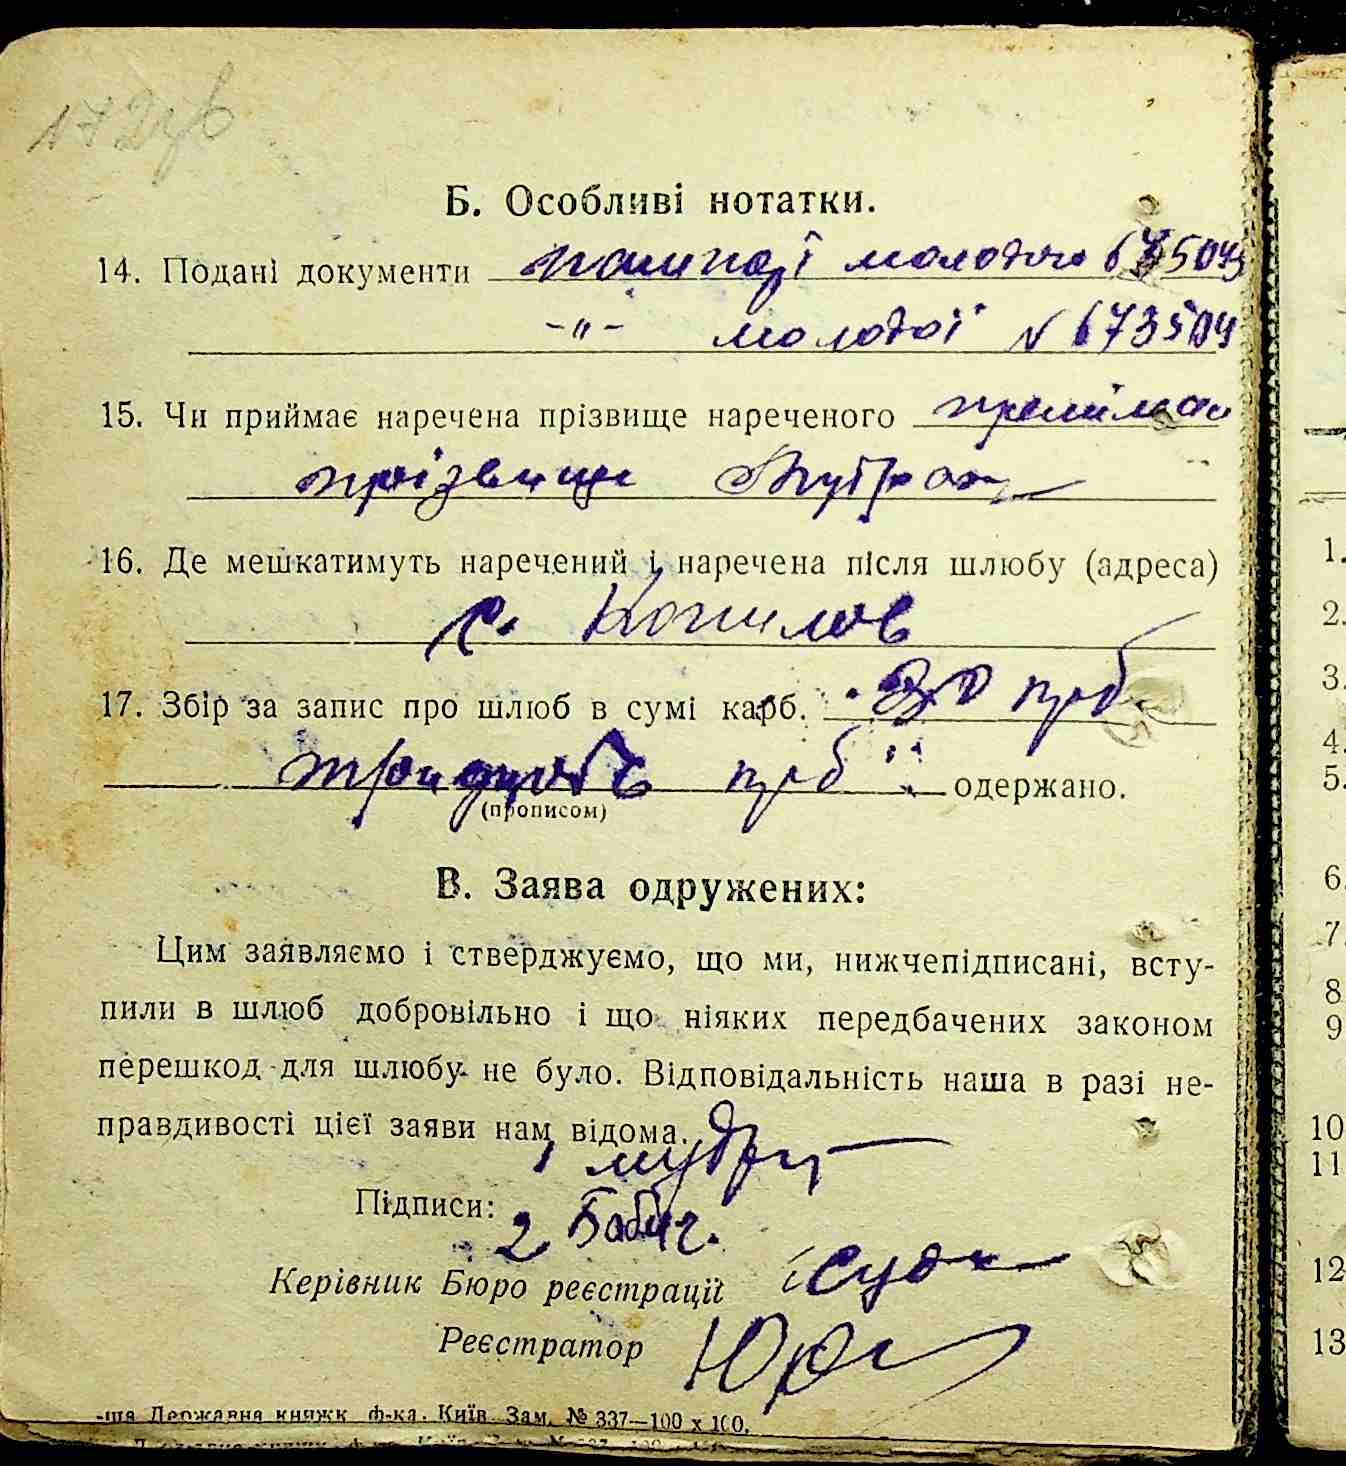 Б. Особливі нотатки.
14. Подані документи пашпорт молодого
-"- молодої № 673504
15. Чи приймає наречена прізвище нареченого
прізвище
16. Де мешкатимуть наречений і наречена після шлюбу (адреса)
с. Копилов
17. Збір за запис про шлюб в сумі карб. 30 крб
тридцять крб одержано.
(прописом)
В. Заява одружених:
Цим заявляємо і стверджуємо, що ми, нижчепідписані, всту-
пили в шлюб добровільно і що ніяких передбачених законом
перешкод для шлюбу не було. Відповідальність наша в разі не-
правдивості цієї заяви нам відома.
1
Підписи:
2 Бабич.
Керівник Бюро реєстрації
Реєстратор
-ша Державна книжк. ф-ка. Київ. Зам. № 337—100 x 100.
1.
2.
3.
4.
5.
6.
7.
8
9
10
11
12
13